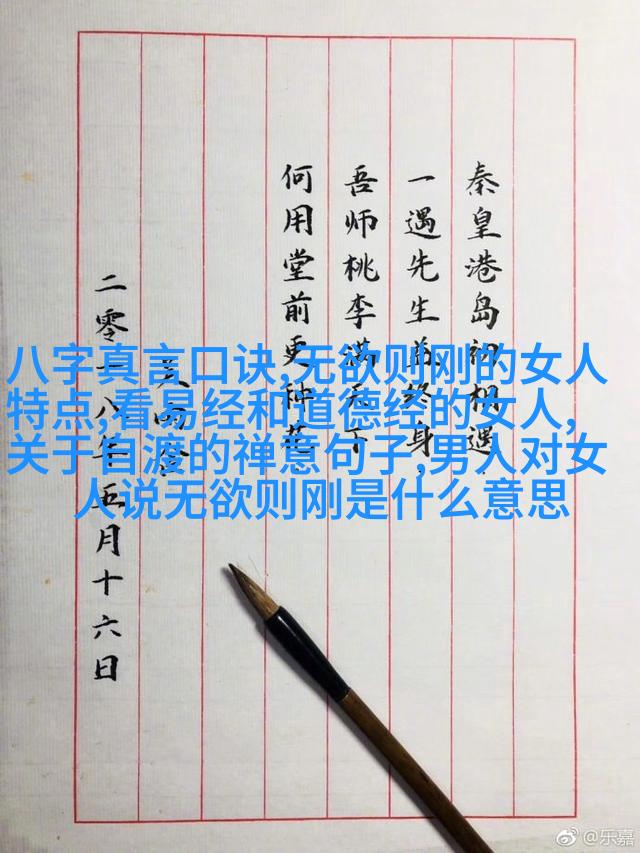 秦皇港岛初相遇
一遇先生益终身
吾师桃李满天下
何用堂前更种花
二零一八年五月十六日
八字真言口诀,无欲则刚的女人
特点,看易经和道德经的女人,
关于自渡的禅意句子,男人对女
人说无欲则刚是什么意思
@乐嘉